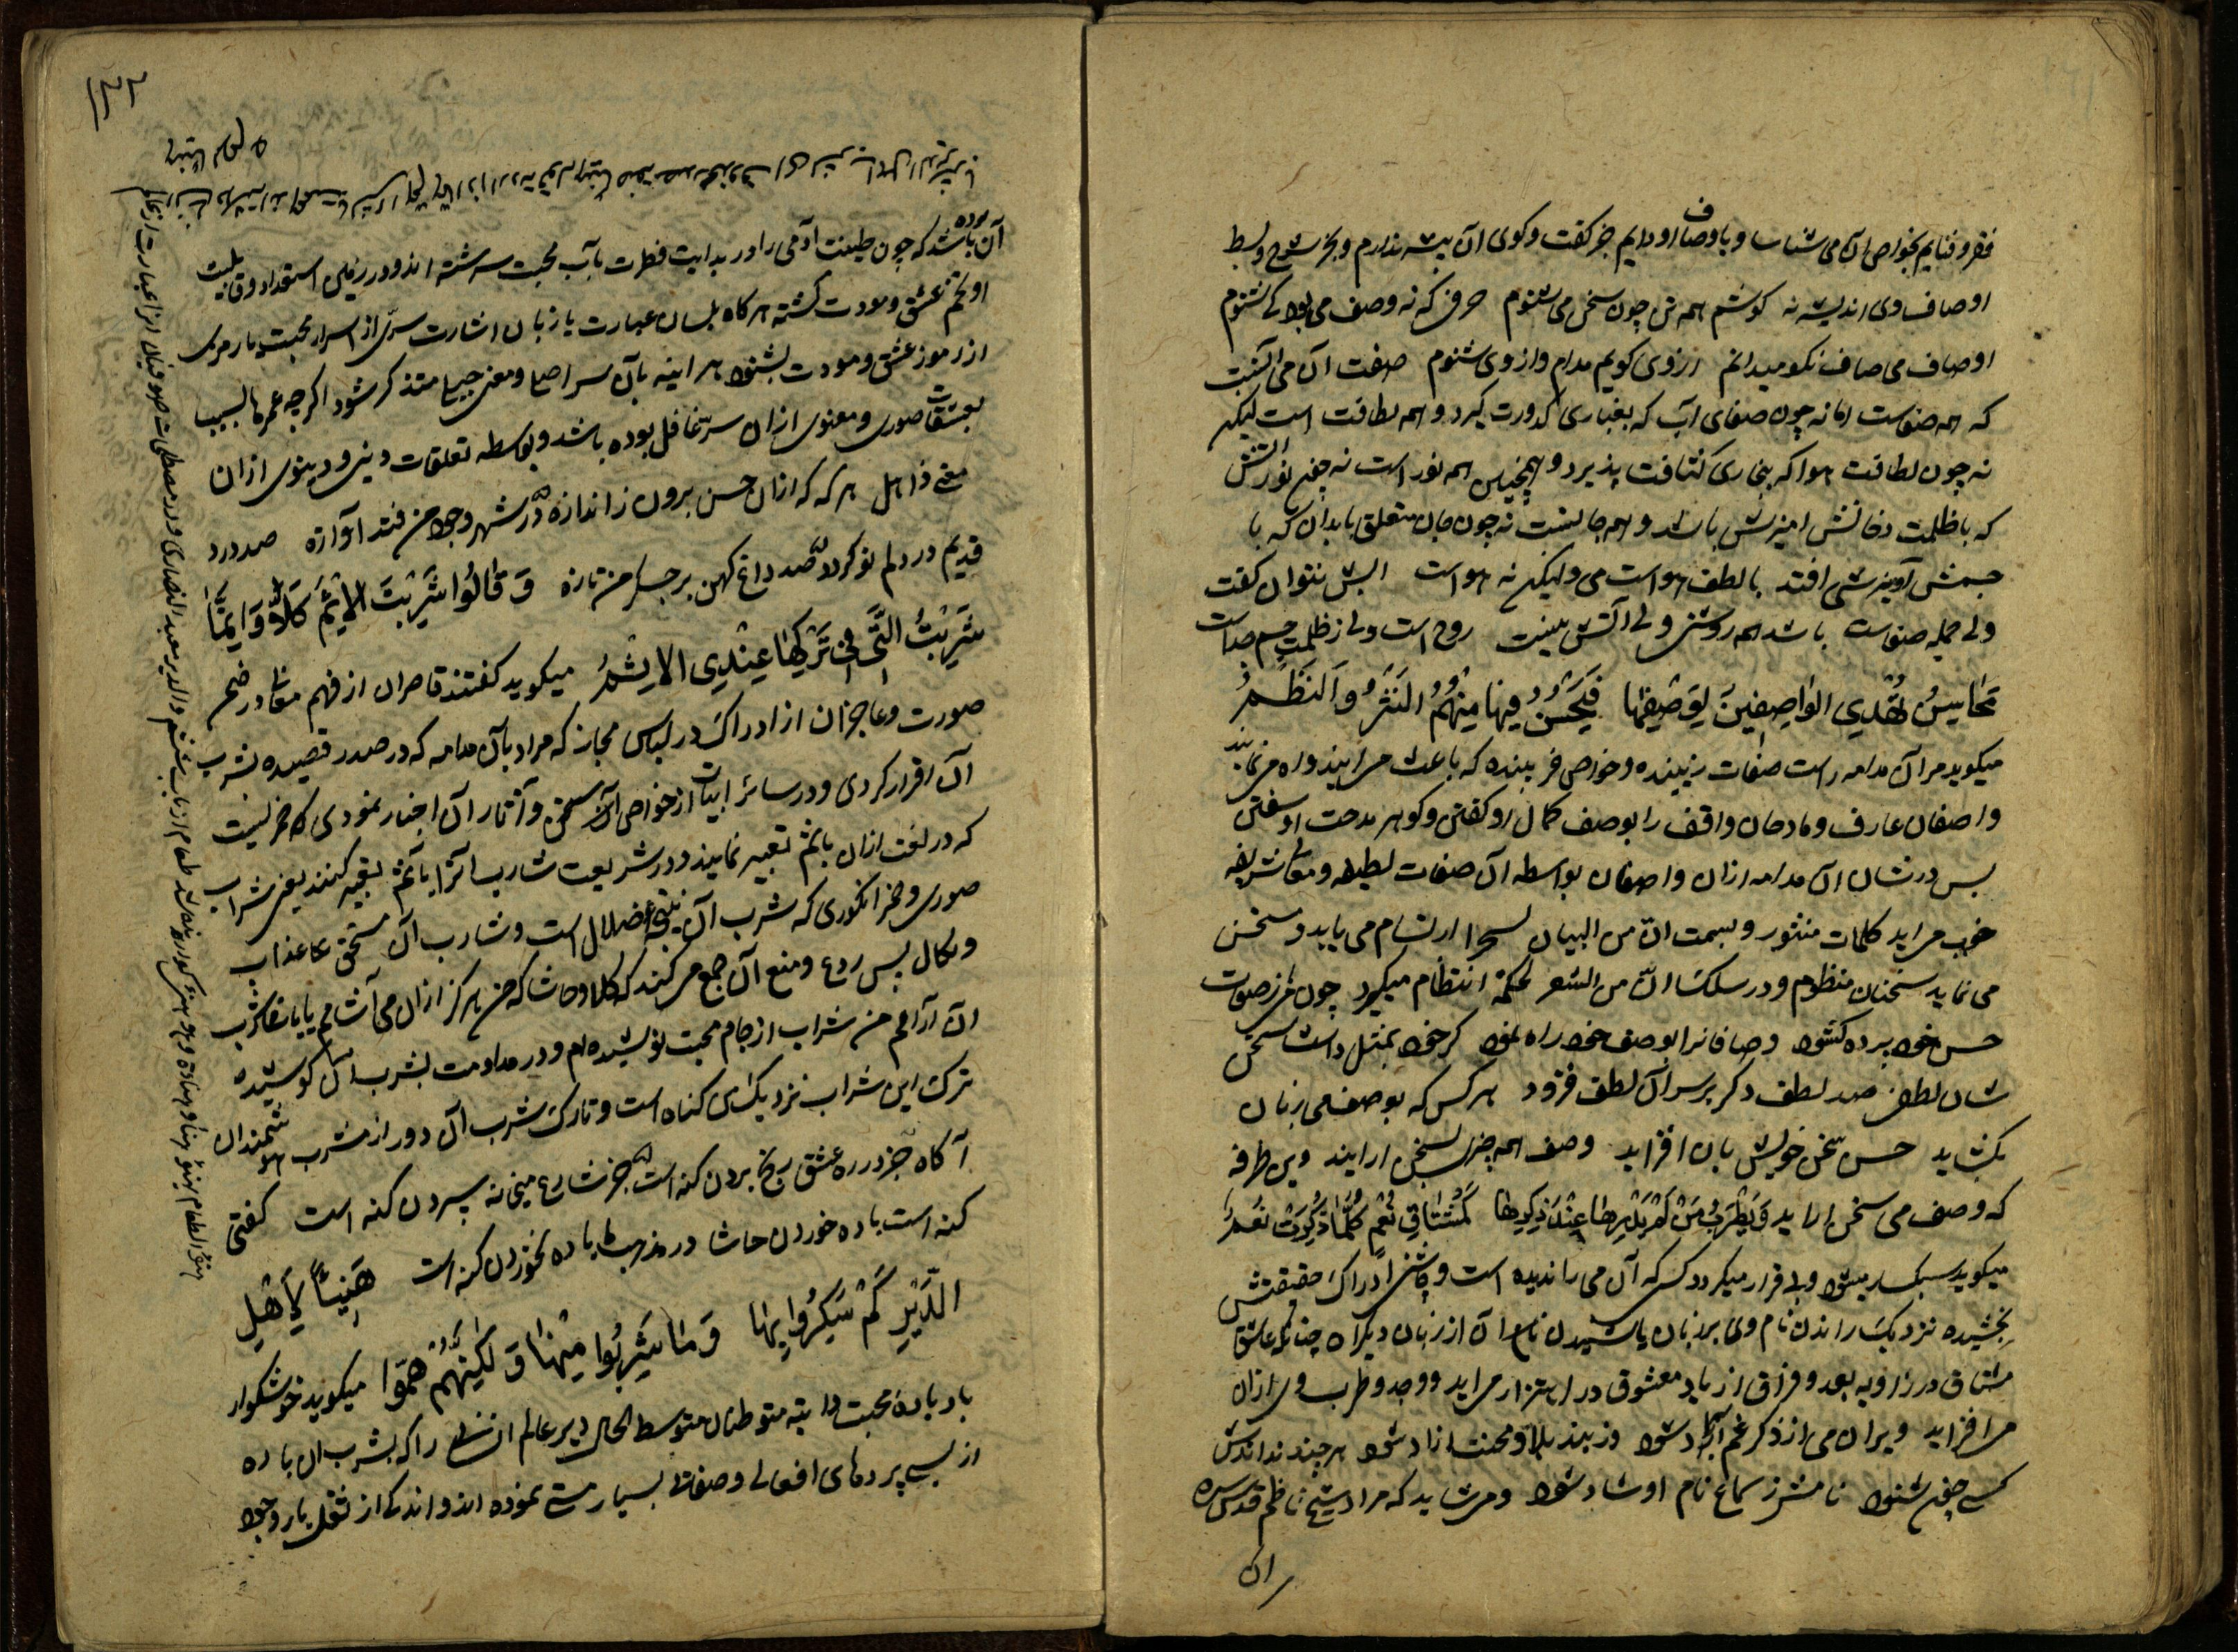 فقر و فنایم بخواص آن می شناسا و باوصاف او دایم جز گفت و گوی آن پیشه ندارم و بجز شرح و بسط
اوصاف وی اندیشه نه گوشم همه تن چون سخن می شنوم حرفی که نه وصف می بود کی شنوم
اوصاف می صاف نکو میدانم از وی گویم مدام و از وی شنوم صفت آن می آنست
که همه صفاست اما نه چون صفای آب که بغباری کدورت گیرد و همه لطافت است لیکن
نه چون لطافت هوا که ببخاری کثافت پذیرد و همچنین همه نور است نه چون نور آتش
که با ظلمت دخانش امیزش باشد و همه جانست نه چون جان متعلق بابدان که با
جسمش آمیزشی افتد با لطف هواست می ولیکن نه هواست آبش نتوان گفت
ولی جمله صفاست باشد همه روشن ولی آتش نیست روح است ولی از ظلمت جسم جداست
مَحَاسِنُ تَهْدِی الوَاصِفِینَ لِوَصْفِهَا فَیَحْسُنُ فِیهَا مِنْهُمُ النَثْرُ وَالنَظْمُ
میگوید مر آن مدامه راست صفات زیبنده و خواص فریبنده که باعث می ایند و راه می نمایند
واصفان عارف و مادحان واقف را بوصف کمال او گفتن و گوهر مدحت او سفتن
پس در شان آن مدامه ازان واصفان بواسطه آن صفات لطیفه و معانی شریفه
خوب می اید کلمات منثور و بسمت ان من البیان لسحرا ارتسام می یابد و مستحسن
می نماید سخنان منظوم و در سلک ان من الشعر لحکمة انتظام میگیرد چون می ز صفات
حسن خود پرده گشود وصافانرا بوصف خود راه نمود گر خود بمثل داشت سخن
شان لطفی صد لطف دگر بر سر آن لطف فزود هر کس که بوصف می زبان
بگشاید حسن سخن خویش بان افزاید وصف همه چیز بسخن ارایند وین طرفه
که وصف می سخن اراید وَیَطْرَبُ مَنْ لَمْ یَدْرِهَا عِنْدَ ذِکْرِهَا کَمُشْتَاقِ نُعْمٍ کُلَّمَا ذُکِرَتْ نُعْمُ
میگوید سبکسار میشود و بی قرار میگردد کسی که آن می را ندیده است و چاشنی ادراک حقیقتش
نچشیده نزدیک راندن نام وی بر زبان یا شنیدن نام آن از زبان دیگران چنانکه عاشق
مشتاق در زاویه بعد و فراق از یاد معشوق در اهتزاز می اید و وجد و طرب وی ازان
می افزاید ویران می از ذکر غم آباد شود وز بند بلا و محنت ازاد شود هر چند نداندش
کسی چون شنود نامش ز سماع نام او شاد شود و می شاید که مراد شیخ ناظم قدس سره
ان
آن بوده باشد که چون طینت آدمی را در بدایت فطرت بآب محبت سرشته اند و در زمین استعداد و قابلیت
او تخم عشق و مودت کشته هر گاه بلسان عبارت یا زبان اشارت سری از اسرار محبت یا رمزی
از رموز عشق و مودت بشنود هر اینه بآن سر اصلی و معنی جبلی متذکر شود اگر چه عمرها بسبب
تعشقات صوری و معنوی ازان سر غافل بوده باشد و بواسطه تعلقات دینی و دنیوی ازان
معنی ذاهل هر گه که ازان حسن برون ز اندازه در شهر وجود من فتد آوازه صد درد
قدیم در دلم نو گردد صد داغ کهن بر جگر من تازه وَ قَالُوا شَرِبْتَ الاِثْمَ کَلاَّ وَ اِنَّمَا
شَرِبْتُ الَّتِی فِی تَرْکِهَا عِنْدِیَ الاِثْمُ میگوید گفتند قاصران از فهم معانی در ضمن
صورت و عاجزان از ادراک در لباس مجاز که مراد بآن مدامه که در صدر قصیده بشرب
آن اقرار کردی و در سائر ابیات از خواص آن سخن و آثار آن اخبار نمودی که خمریست
که در لغت ازان باثم تعبیر نمایند و در شریعت شارب آنرا بآثم تعبیر کنند یعنی شراب
صوری و خمر انگوری که شرب آن نتیجه ضلال است و شارب آن مستحق عذاب
و نکال پس ردع و منع آن جمع می کند که کلا و حاشا که من هرگز ازان می آشامم یا باشامندگان
آن آرامم من شراب از جام محبت نوشیده ام و در مداومت بشرب آن کوشیده
ترک این شراب نزدیک من گناه است و تارک شرب آن دور از مشرب هوشمندان
آگاه جز در ره عشق رنج بردن گنه است جز شارع میخانه سپردن گنه است گفتی
گنه است باده خوردن حاشا در مذهب ما باده نخوردن گنه است هَنِیئًا لِاَهْلِ
الدَّیْرِ کَمْ سَکِرُوا بِهَا وَمَا شَرِبُوا مِنْهَا وَلَکِنَّهُمْ هَمُّوا میگوید خوشگوار
باد باده محبت ذاتیه متوطنان متوسط الحال دیر عالم انسانی را که بشرب ان باده
از پس پردهای افعالی و صفاتی بسیار مستی نموده اند و اندکی از ثقل بار وجود